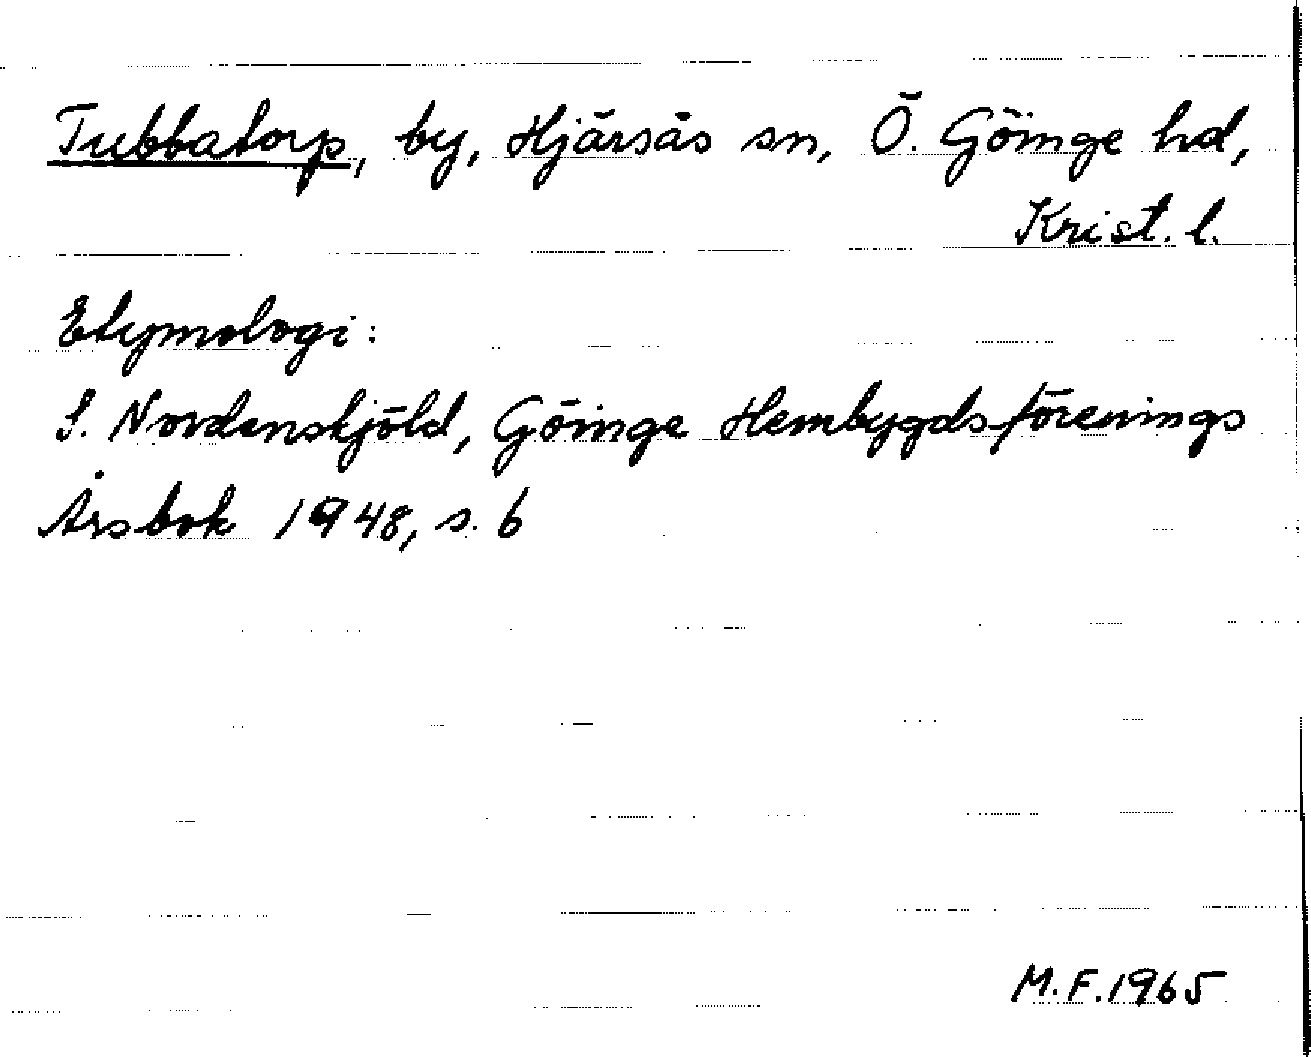 Tubbatorp, by, Hjärsås sn, Ö. Göinge hd,
Krist. l.
Etymologi:
S. Nordenskjöld, Göinge Hembygdsförenings
Årsbok 1948, s. 6
M.F. 1965